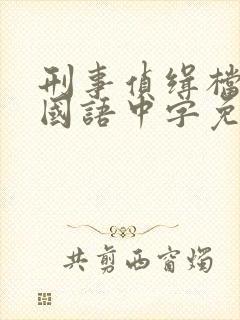 刑事偵緝檔
國語中字免
共剪西窗燭